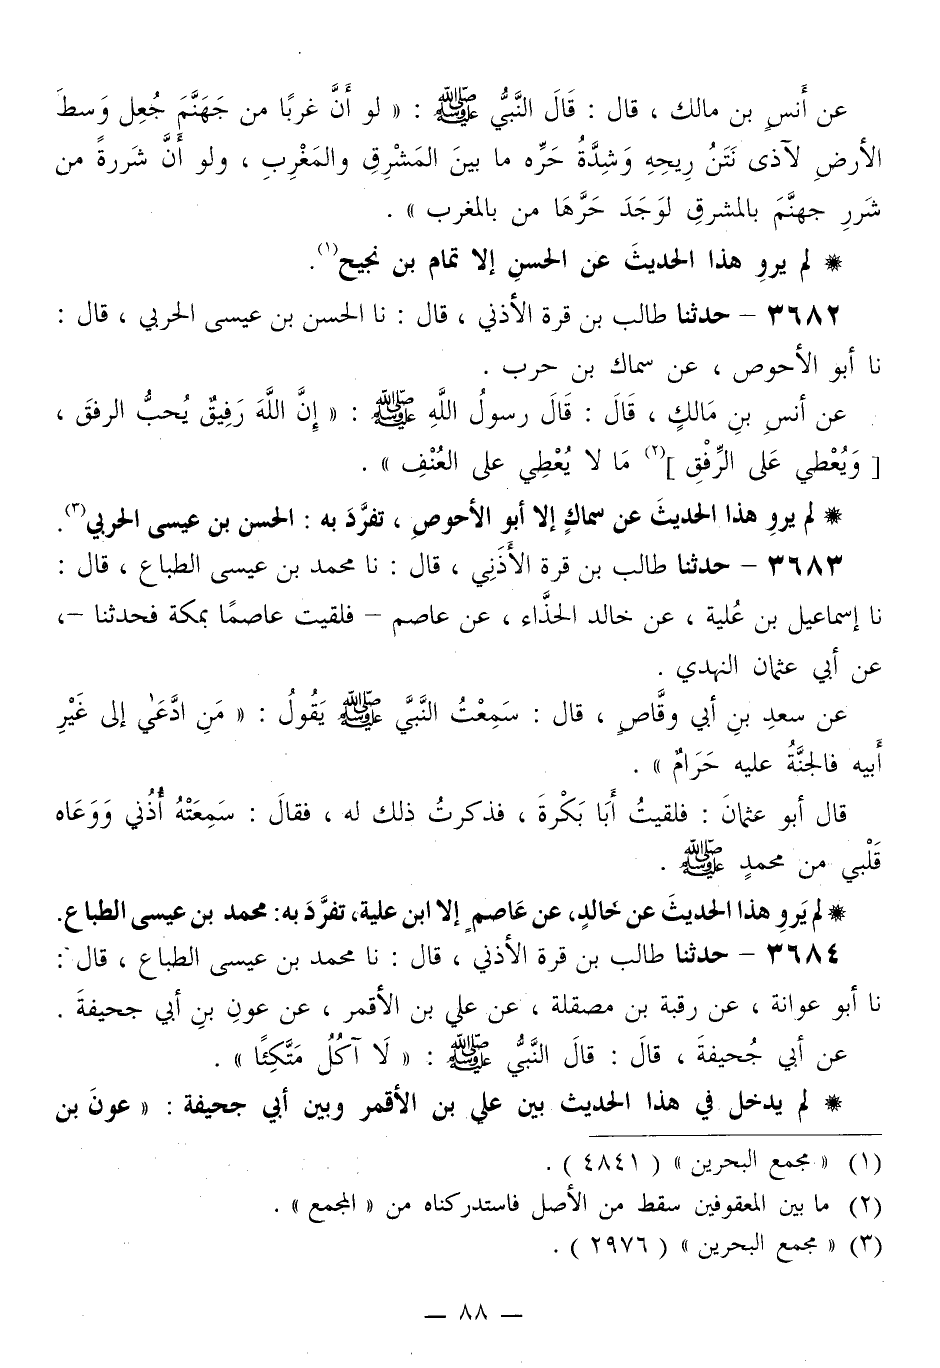 عن أَنسٍ بن مالك ، قال : قَالَ النَّبيُّ ﷺ : « لو أَنَّ غربًا من جَهَنَّمَ جُعِل وَسطَ
الأرضِ لآذى نَتَنُ رِيحِهِ وَشِدَّةُ حَرِّه ما بينَ المَشْرِقِ والمَغْرِبِ ، ولو أَنَّ شَررةً من
شَررِ جهنَّمَ بالمشرقِ لوَجَدَ حَرَّهَا من بالمغرب » .
* لم يروِ هذا الحديثَ عن الحسنِ إلا تمام بن نجيح(١).
٣٦٨٢ – حدثنا طالب بن قرة الأذني ، قال : نا الحسن بن عيسى الحربي ، قال :
نا أبو الأحوص ، عن سماك بن حرب .
عن أنسِ بنِ مَالكٍ ، قَالَ : قَالَ رسولُ اللَّهِ ﷺ : « إِنَّ اللَّهَ رَفِيقٌ يُحبُّ الرفقَ ،
[ وَيُعْطي عَلى الرِّفْقِ ](٢) مَا لا يُعْطِي على العُنْفِ » .
* لم يروِ هذا الحديثَ عن سماكٍ إلا أبو الأحوصِ ، تفرَّدَ به : الحسن بن عيسى الحربي(٣).
٣٦٨٣ – حدثنا طالب بن قرة الأَذَنِي ، قال : نا محمد بن عيسى الطباع ، قال :
نا إسماعيل بن عُلية ، عن خالد الحذَّاء ، عن عاصم – فلقيت عاصمًا بمكة فحدثنا –،
عن أبي عثمان النهدي .
عن سعدِ بنِ أبي وقَّاصٍ ، قال : سَمِعْتُ النَّبيَّ ﷺ يَقُولُ : « مَنِ ادَّعَىٰ إلى غَيْرِ
أَبيه فالجنَّةُ عليه حَرَامٌ » .
قال أبو عثمانَ : فلقيتُ أَبَا بَكْرةَ ، فذكرتُ ذلك له ، فقالَ : سَمِعَتْهُ أُذُني وَوَعَاه
قَلْبي من محمدٍ ﷺ .
* لم يَروِ هذا الحديثَ عن خَالدٍ، عن عَاصمٍ إلا ابن علية، تفرَّدَ به: محمد بن عيسى الطباع.
٣٦٨٤ – حدثنا طالب بن قرة الأذني ، قال : نا محمد بن عيسى الطباع ، قال :
نا أبو عوانة ، عن رقبة بن مصقلة ، عن علي بن الأقمر ، عن عونِ بنِ أبي جحيفةَ .
عن أبي جُحيفةَ ، قالَ : قالَ النَّبيُّ ﷺ : « لَا آكُلُ مَتَّكِئًا » .
* لم يدخل في هذا الحديث بين علي بن الأقمر وبين أبي جحيفة : « عونَ بن
(١) « مجمع البحرين » ( ٤٨٤١ ) .
(٢) ما بين المعقوفين سقط من الأصل فاستدركناه من « المجمع » .
(٣) « مجمع البحرين » ( ٢٩٧٦ ) .
– ٨٨ –